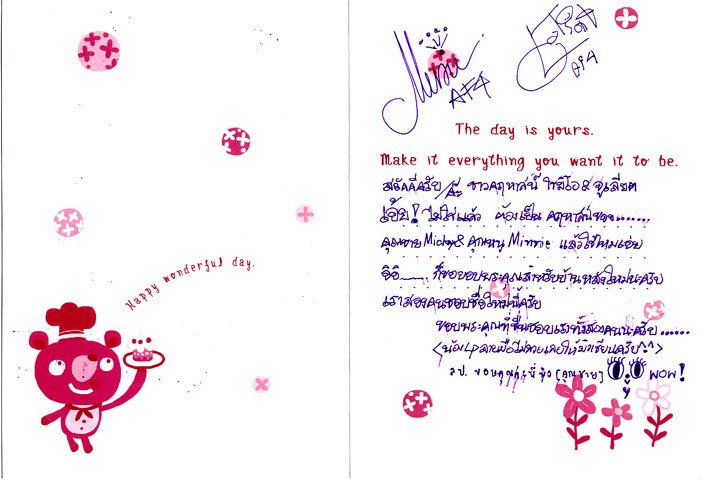 Happy wonderful day.
AF4
AF4
The day is yours.
Make it everything you want it to be.
สวัสดีครับ/ค่ะ ชาวคฤหาสน์ โรมิโอ & จูเลียต
เอ้ย! ไม่ใช่แล้ว ต้องเป็น คฤหาสน์ของ.......
คุณชาย Micky & คุณหนู Minnie แล้วใช่ไหมเอ่ย
อิอิ...... ก็ขอขอบพระคุณสำหรับบ้านหลังใหม่นะครับ
เราสองคนชอบชื่อใหม่นี้ครับ
ขอบพระคุณที่ชื่นชอบเราทั้งสองคนนะครับ......
<น้อง ลายมือไม่สวยเลยให้ เขียนครับ^^>
ขอบคุณ (คุณชาย) WOW!